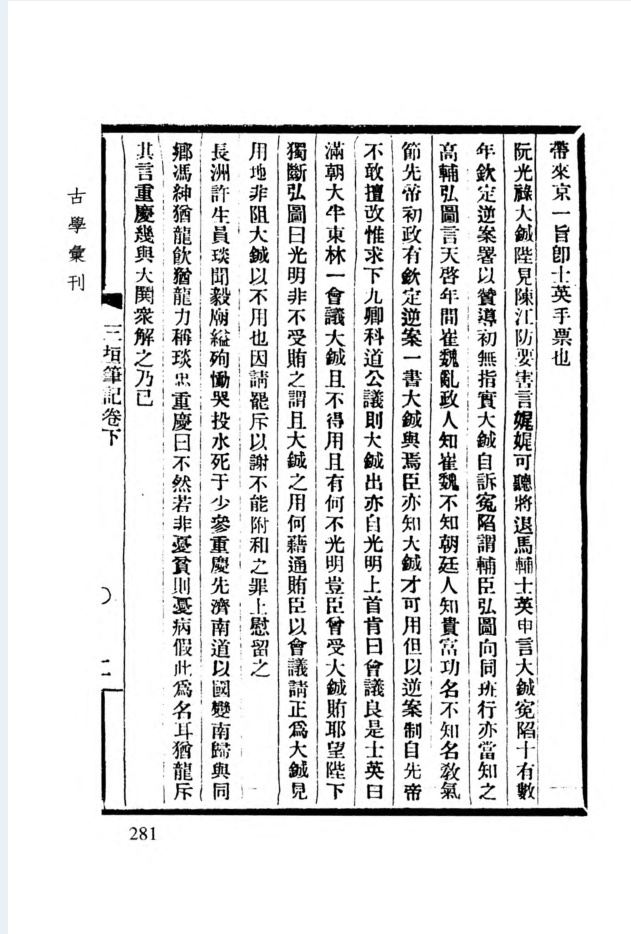 帶來京一旨卽士英手票也
阮光祿大鋮陛見陳江防要害言娓娓可聽將退馬輔士英申言大鋮冤陷十有數
年欽定逆案署以贊導初無指實大鋮自訴冤陷謂輔臣弘圖向同班行亦當知之
高輔弘圖言天啓年間崔魏亂政人知崔魏不知朝廷人知貴富功名不知名敎氣
節先帝初政有欽定逆案一書大鋮與焉臣亦知大鋮才可用但以逆案制自先帝
不敢擅改惟求下九卿科道公議則大鋮出亦自光明上首肯曰會議良是士英曰
滿朝大半東林一會議大鋮且不得用且有何不光明豈臣曾受大鋮賄耶望陛下
獨斷弘圖曰光明非不受賄之謂且大鋮之用何藉通賄臣以會議請正爲大鋮見
用地非阻大鋮以不用也因請罷斥以謝不能附和之罪上慰留之
長洲許生員琰聞毅廟縊殉慟哭投水死于少參重慶先濟南道以國變南歸與同
鄉馮紳猶龍飮猶龍力稱琰忠重慶曰不然若非憂貧則憂病假此爲名耳猶龍斥
其言重慶幾與大鬨衆解之乃已
三垣筆記卷下
二
古學彙刊
281